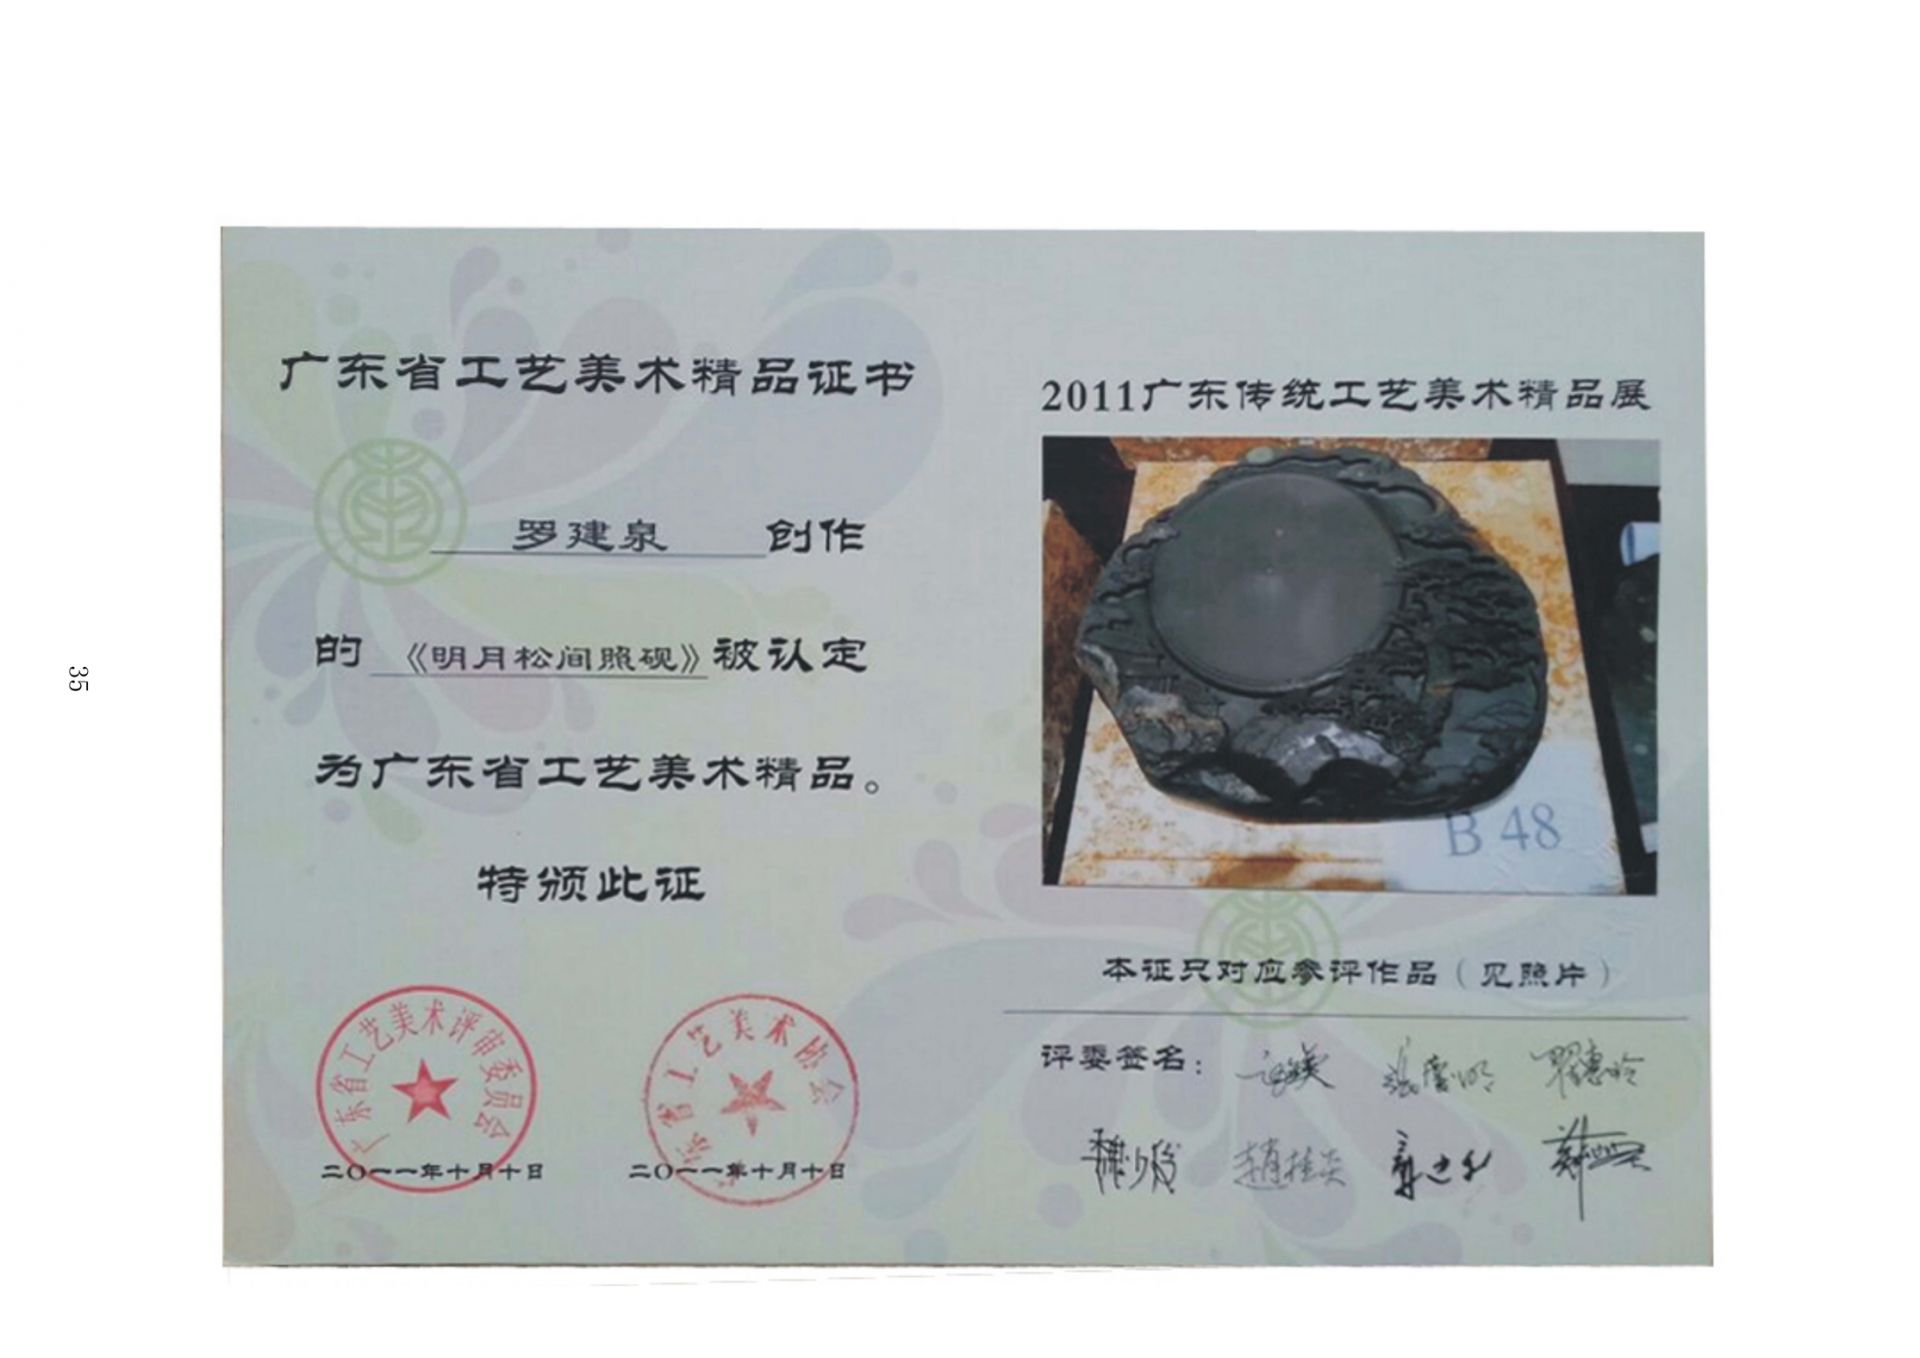 广东省工艺美术精品证书
罗建泉 创作
的《明月松间照砚》被认定
为广东省工艺美术精品。
特颁此证
广东省工艺美术评审委员会
二〇一一年十月十日
东省工艺美术协会
二〇一一年十月十日
2011广东传统工艺美术精品展
B 48
本证只对应参评作品（见照片）
评委签名：
35